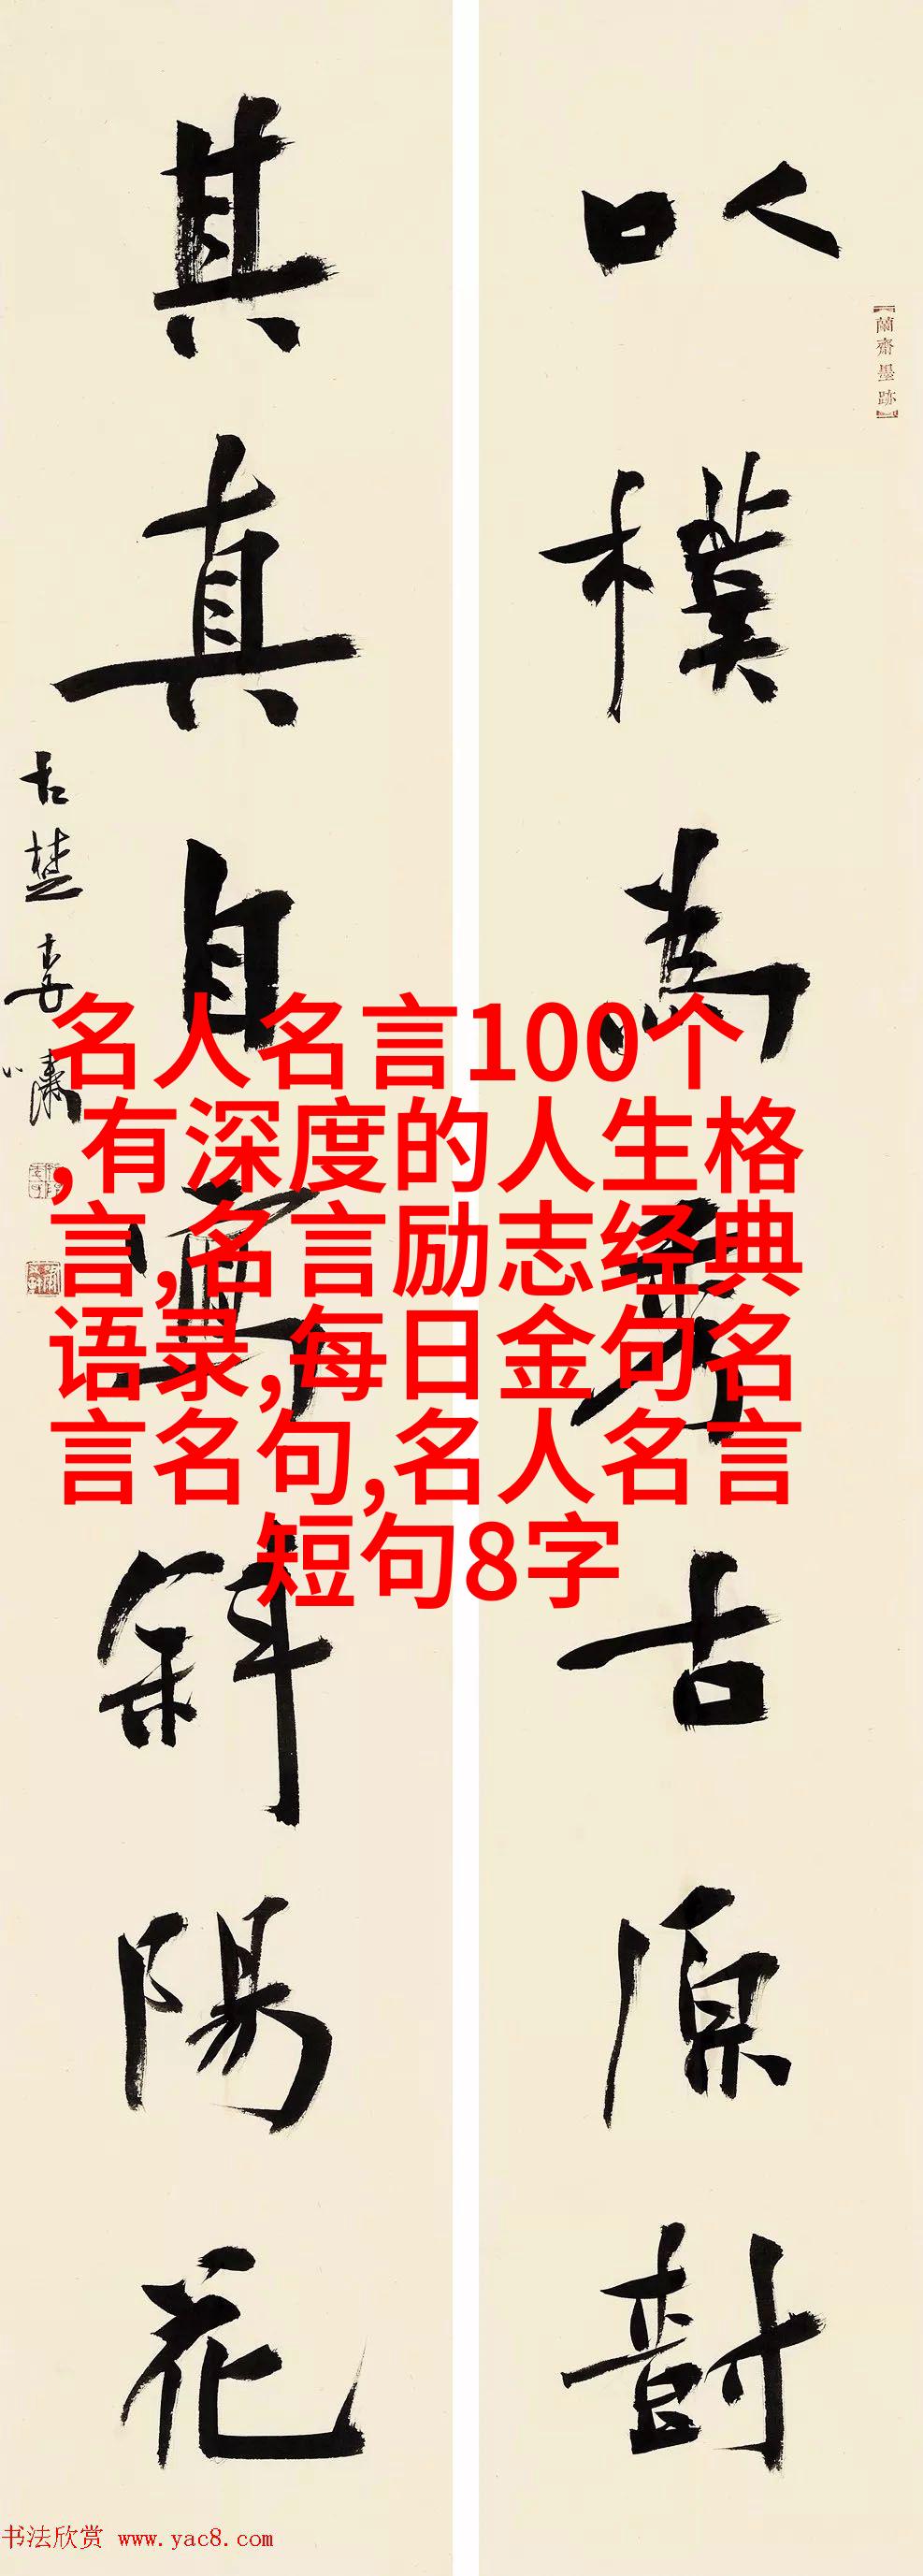 以樸為秀古原樹
其真自寫斜陽花
古楚李瀟
【蘭齋墨跡】
名人名言100个
,有深度的人生格
言,名言励志经典
语录,每日金句名
言名句,名人名言
短句8字
书法欣赏 www.yac8.com